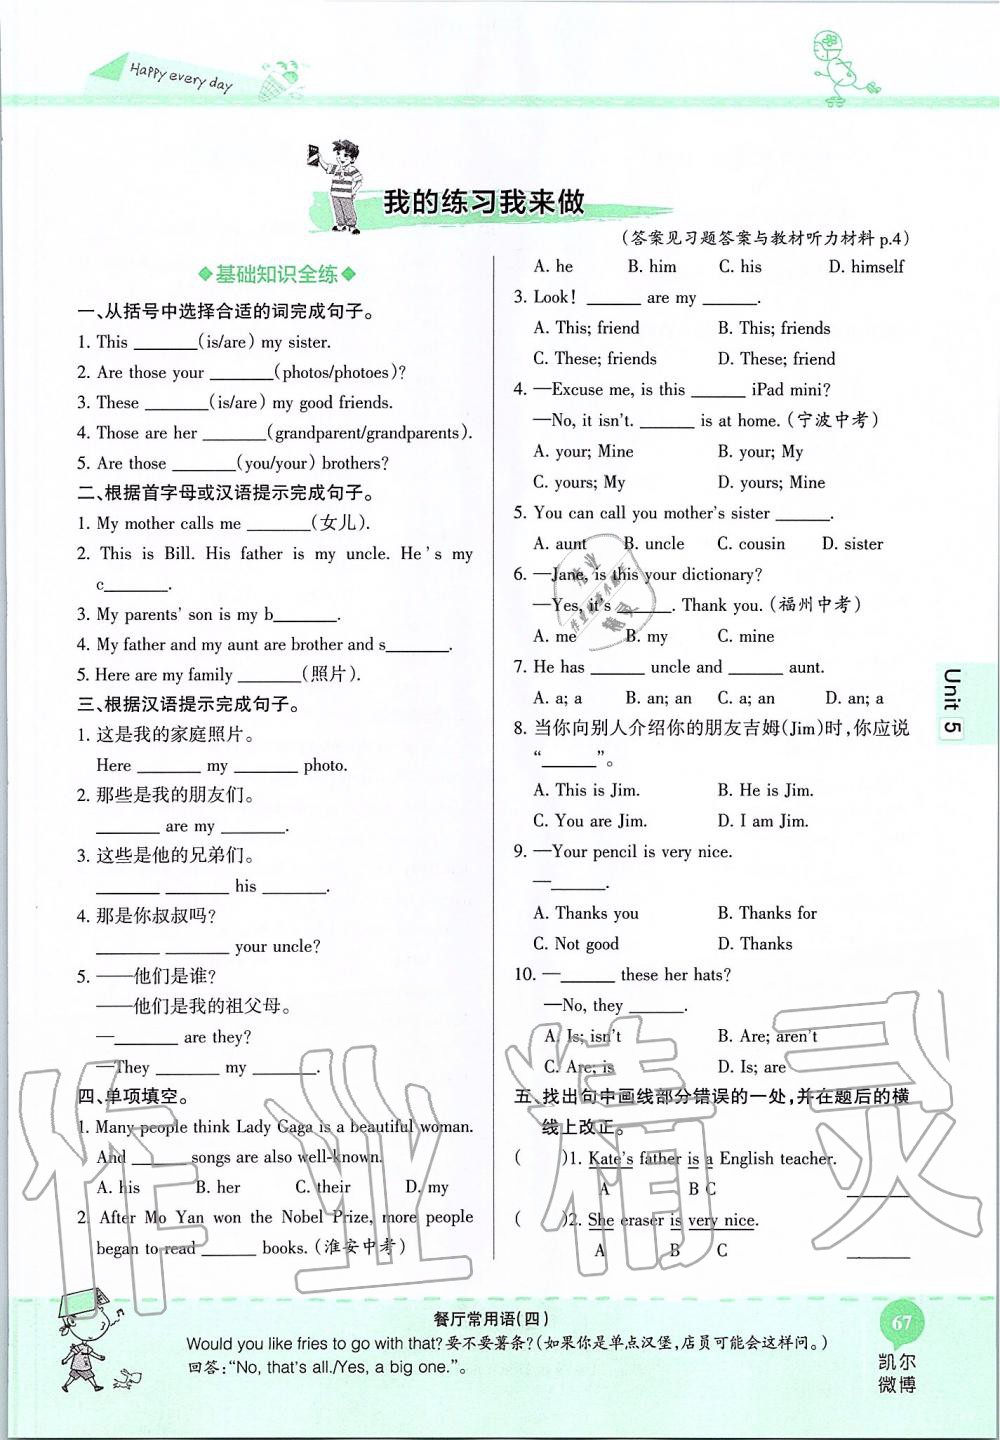 Happy every day
我的练习我来做
(答案见习题答案与教材听力材料 p.4)
基础知识全练
一、从括号中选择合适的词完成句子。
1. This ________(is/are) my sister.
2. Are those your ________(photos/photoes)?
3. These ________(is/are) my good friends.
4. Those are her ________(grandparent/grandparents).
5. Are those ________(you/your) brothers?
二、根据首字母或汉语提示完成句子。
1. My mother calls me ________(女儿).
2. This is Bill. His father is my uncle. He's my
c________.
3. My parents' son is my b________.
4. My father and my aunt are brother and s________.
5. Here are my family ________(照片).
三、根据汉语提示完成句子。
1. 这是我的家庭照片。
Here ________ my ________ photo.
2. 那些是我的朋友们。
________ are my ________.
3. 这些是他的兄弟们。
________ ________ his ________.
4. 那是你叔叔吗?
________ ________ your uncle?
5. ——他们是谁?
——他们是我的祖父母。
—________ are they?
—They ________ my ________.
四、单项填空。
1. Many people think Lady Gaga is a beautiful woman.
And _______ songs are also well-known.
A. his B. her C. their D. my
2. After Mo Yan won the Nobel Prize, more people
began to read _______ books. (淮安中考)
A. he B. him C. his D. himself
3. Look! _______ are my _______.
A. This; friend B. This; friends
C. These; friends D. These; friend
4. —Excuse me, is this _______ iPad mini?
—No, it isn't. _______ is at home. (宁波中考)
A. your; Mine B. your; My
C. yours; My D. yours; Mine
5. You can call you mother's sister _______.
A. aunt B. uncle C. cousin D. sister
6. —Jane, is this your dictionary?
—Yes, it's _______. Thank you. (福州中考)
A. me B. my C. mine
7. He has _______ uncle and _______ aunt.
A. a; a B. an; an C. a; an D. an; a
8. 当你向别人介绍你的朋友吉姆(Jim)时,你应说
“_______”。
A. This is Jim. B. He is Jim.
C. You are Jim. D. I am Jim.
9. —Your pencil is very nice.
—_______.
A. Thanks you B. Thanks for
C. Not good D. Thanks
10. —_______ these her hats?
—No, they _______.
A. Is; isn't B. Are; aren't
C. Are; is D. Is; are
五、找出句中画线部分错误的一处,并在题后的横
线上改正。
( )1. Kate's father is a English teacher.
A B C ________
( )2. She eraser is very nice.
A B C ________
Unit 5
餐厅常用语(四)
Would you like fries to go with that?要不要薯条?(如果你是单点汉堡,店员可能会这样问。)
回答:“No, that's all./Yes, a big one.”。
67
凯尔
微博
作业精灵